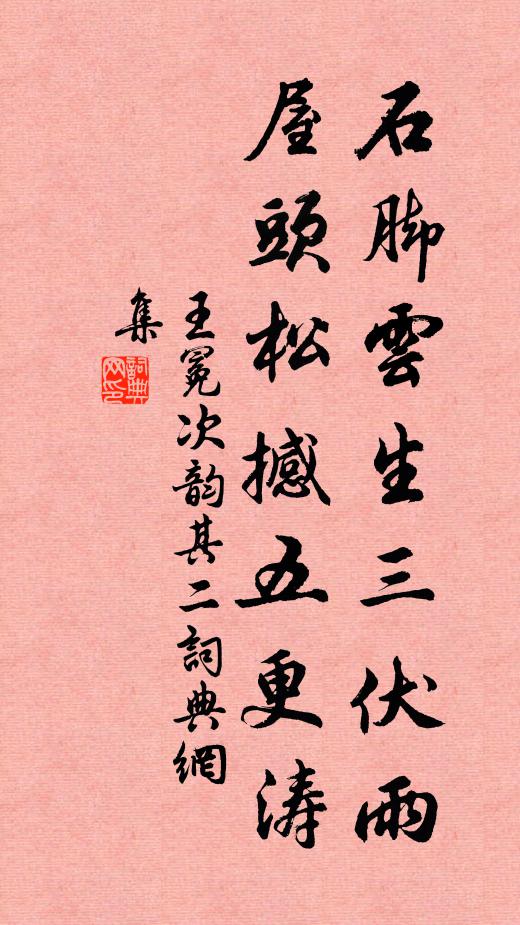 石脚雲生三伏雨
屋頭松撼五更涛
王冕次韵其二詞典網
集
詞典
网印